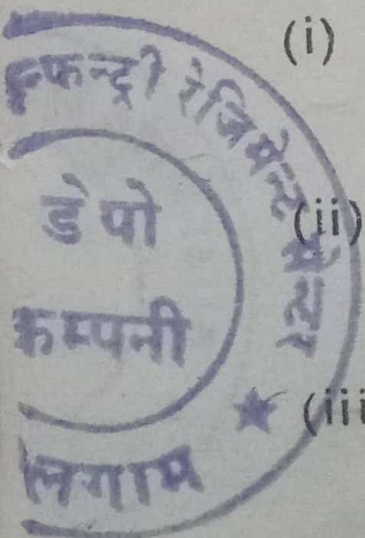 (i)
न्फन्ट्री रेजिमेन्ट सेन्टर
(ii)
डेपो
कम्पनी
(iii
लगाम